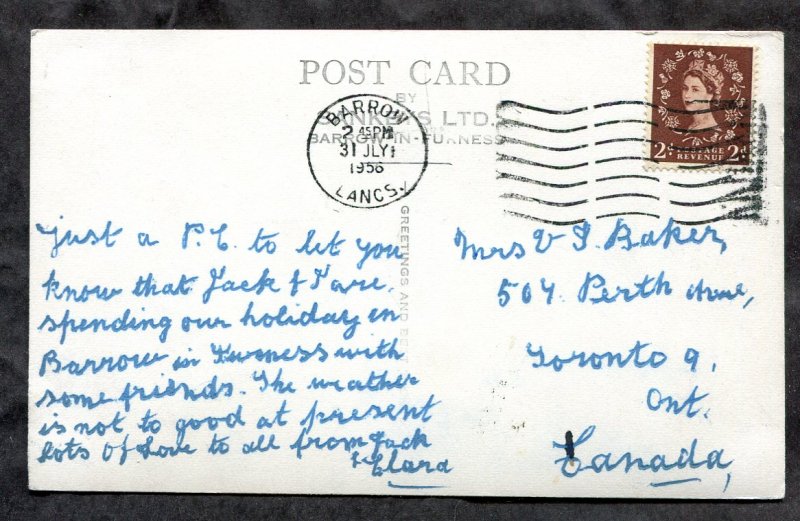 POST CARD
BY
LTD.
BARROW-IN-FURNESS
BARROW
2 45PM
31 JLY
1958
LANCS.
POSTAGE
2D REVENUE 2D
GREETINGS AND
Just a P.C. to let you
know that Jack & I are
spending our holiday in
Barrow in Furness with
some friends. The weather
is not to good at present
lots of love to all from Jack
& Clara
Mrs V J. Baker,
507. Perth Ave,
Toronto 9,
Ont.
Canada,